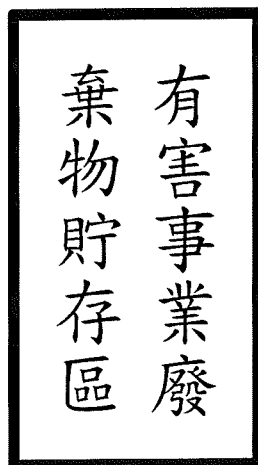 有害事業廢
棄物貯存區